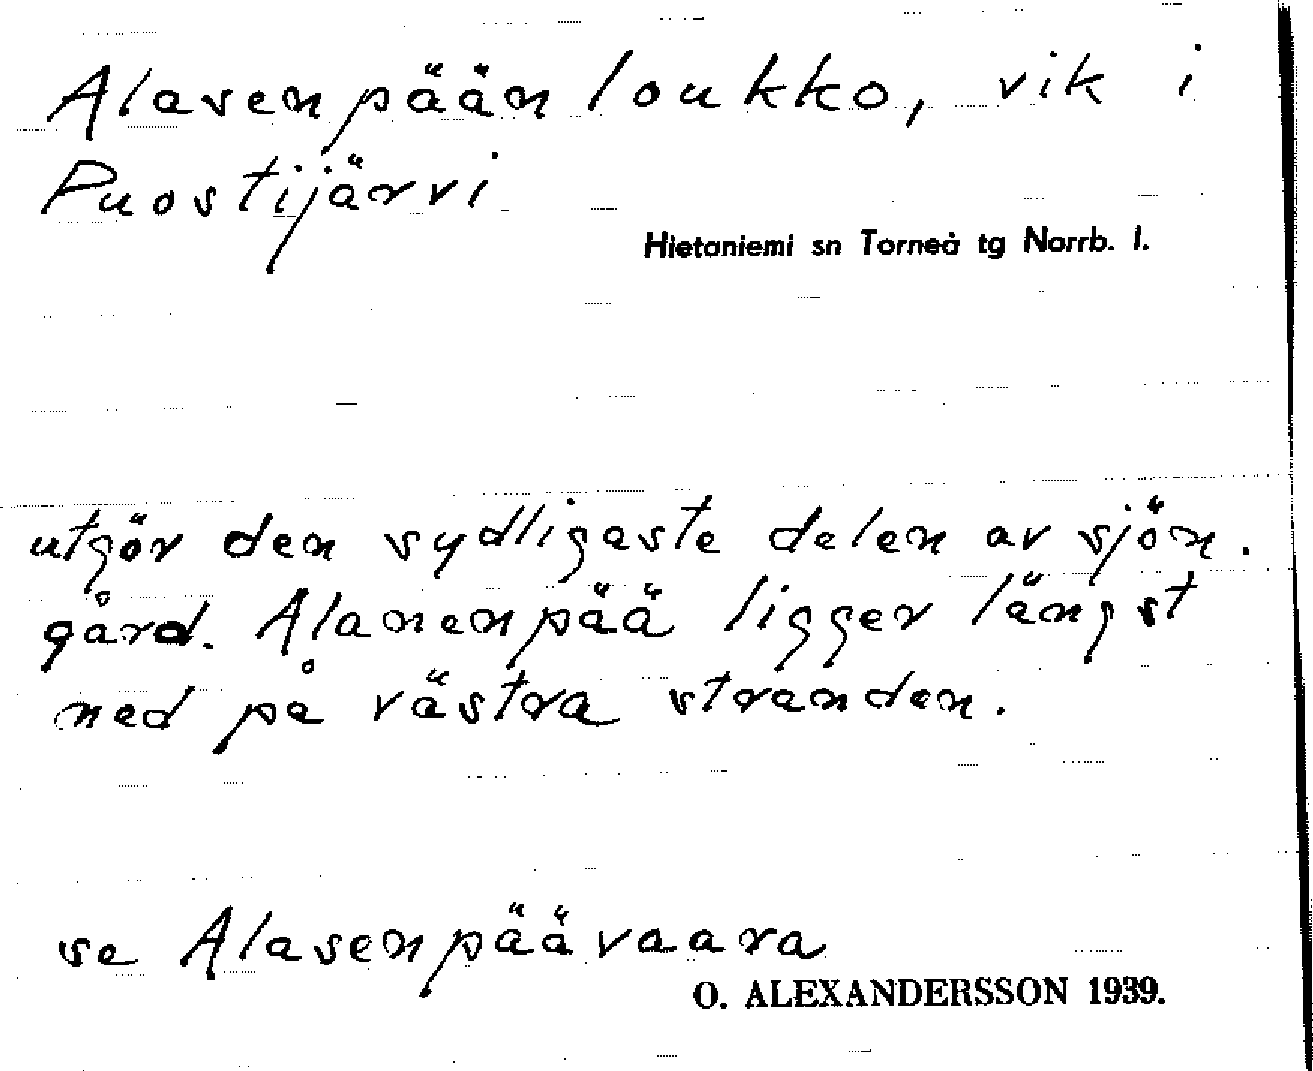 Alasenpään loukko, vik i
Puostijärvi
Hietaniemi sn Torneå tg Norrb. l.
utgör den sydligaste delen av sjön.
gård. Alanenpää ligger längst
ned på västra stranden.
se Alasenpäävaara
O. ALEXANDERSSON 1939.